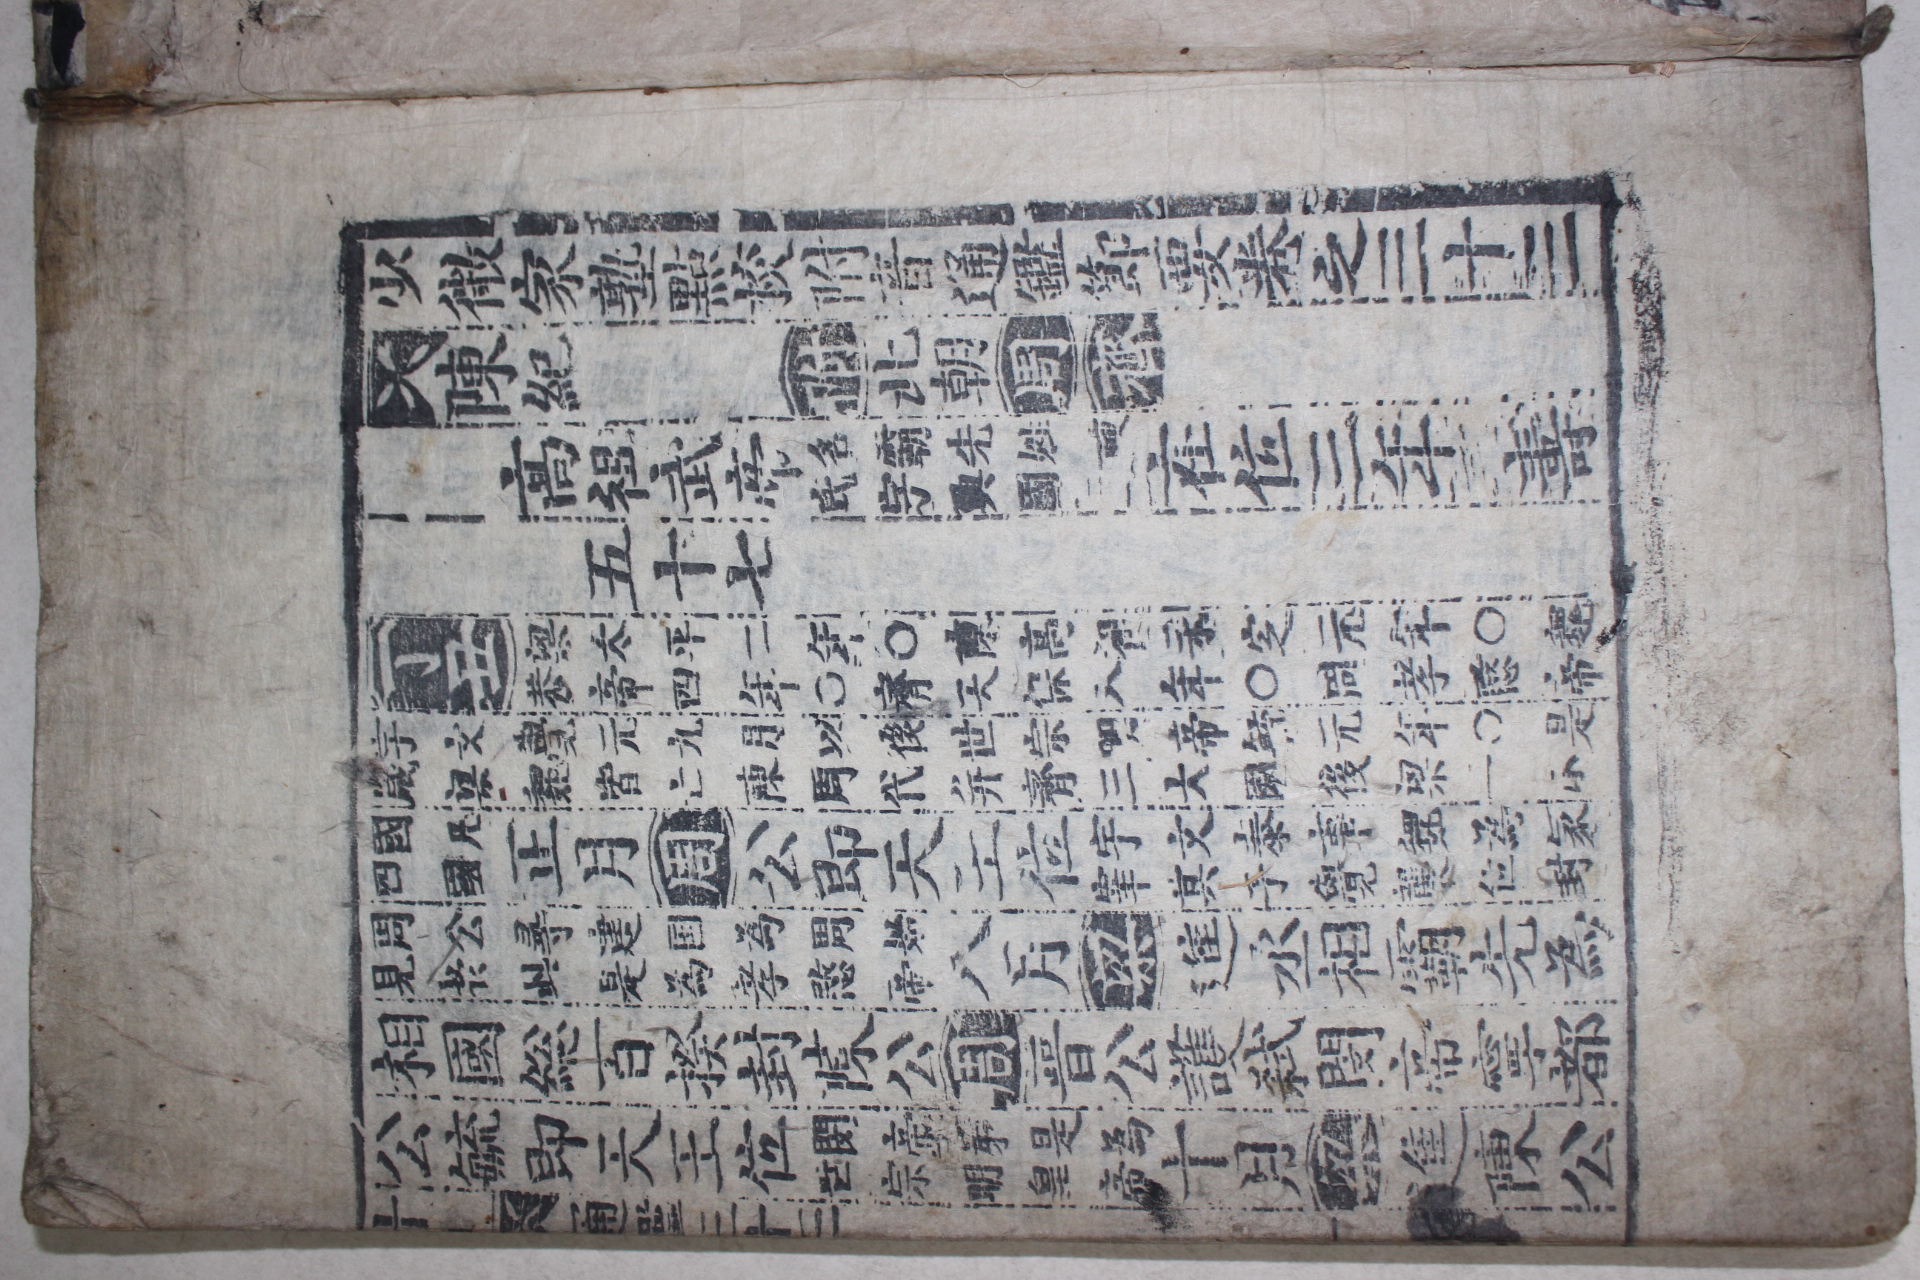 少微家塾點校附音通鑑節要卷之三十三
陳紀 附北朝周齊
高祖武帝名霸先姓陳氏字興國在位三年壽
五十七
丁丑梁太平二年○陳高祖永定元年○魏恭帝四年○齊天保八年○周孝愍帝
宇文覺元九月以後世宗明帝毓元年○是歲梁魏皆亡陳周代并齊三大國後梁一小
國凡四國正月周公即天王位宇文泰事魏為冢宰其子覺襲位封
周公尋建国為周始見於此是為孝愍帝八月梁進丞相霸先為
相國総百揆封陳公周晋公護弑閔帝寧都
公毓即天王位閔帝弟是為世宗明皇帝十月梁進陳公
通鑑三十三